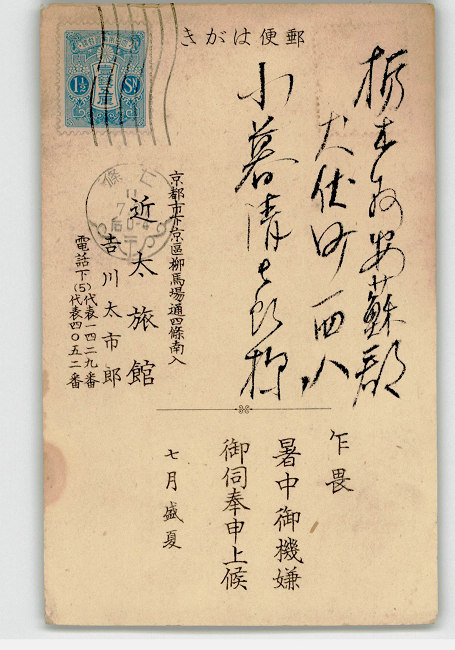 郵便はがき
1½ Sn
栃木縣安蘇郡
犬伏町一四八
小暮清七郎様
京都市下京區柳馬場通四條南入
近太旅館
吉川太市郎
電話下(5)代表一四二九番
代表四〇五二番
乍畏
暑中御機嫌
御伺奉申上候
七月盛夏